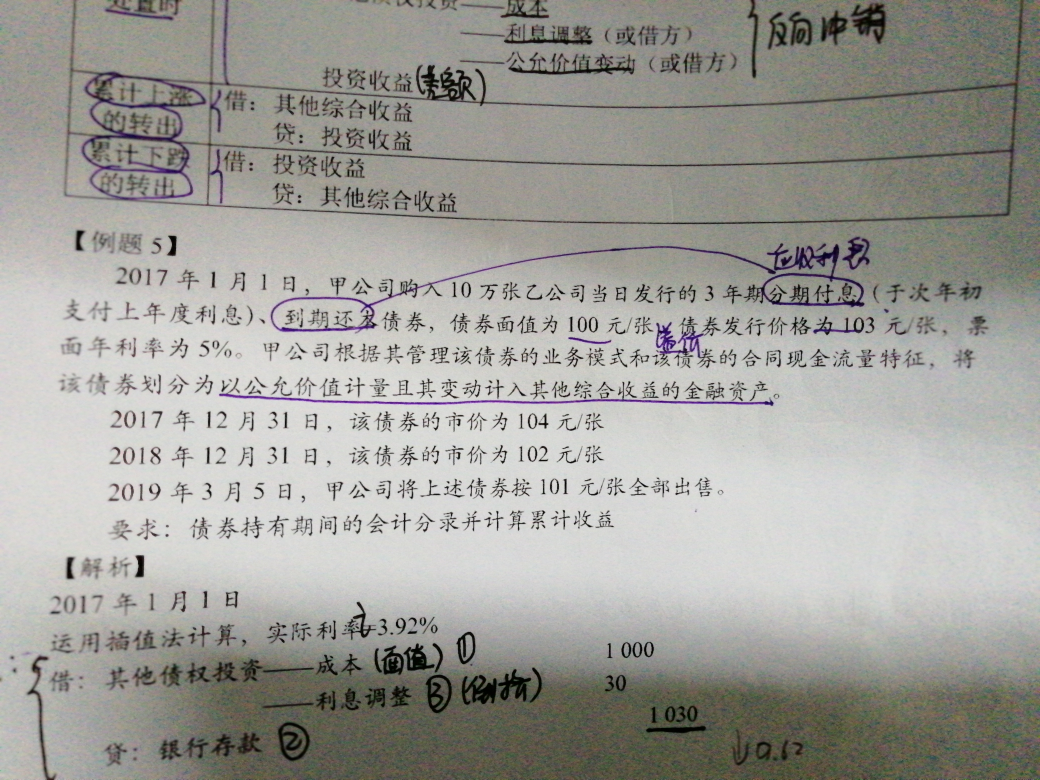 处置时
——成本
——利息调整（或借方）
——公允价值变动（或借方）
反向冲销
投资收益(差额)
累计上涨的转出
借：其他综合收益
贷：投资收益
累计下跌的转出
借：投资收益
贷：其他综合收益
【例题 5】
应收利息
2017 年 1 月 1 日，甲公司购入 10 万张乙公司当日发行的 3 年期分期付息（于次年初
支付上年度利息）、到期还本债券，债券面值为 100 元/张，债券发行价格为 103 元/张，票
溢价
面年利率为 5%。甲公司根据其管理该债券的业务模式和该债券的合同现金流量特征，将
该债券划分为以公允价值计量且其变动计入其他综合收益的金融资产。
2017 年 12 月 31 日，该债券的市价为 104 元/张
2018 年 12 月 31 日，该债券的市价为 102 元/张
2019 年 3 月 5 日，甲公司将上述债券按 101 元/张全部出售。
要求：债券持有期间的会计分录并计算累计收益
【解析】
2017 年 1 月 1 日
运用插值法计算，实际利率=3.92%
借：其他债权投资——成本 (面值) ① 1 000
——利息调整 ③ (倒挤) 30
1 030
贷：银行存款 ②
↓9.62